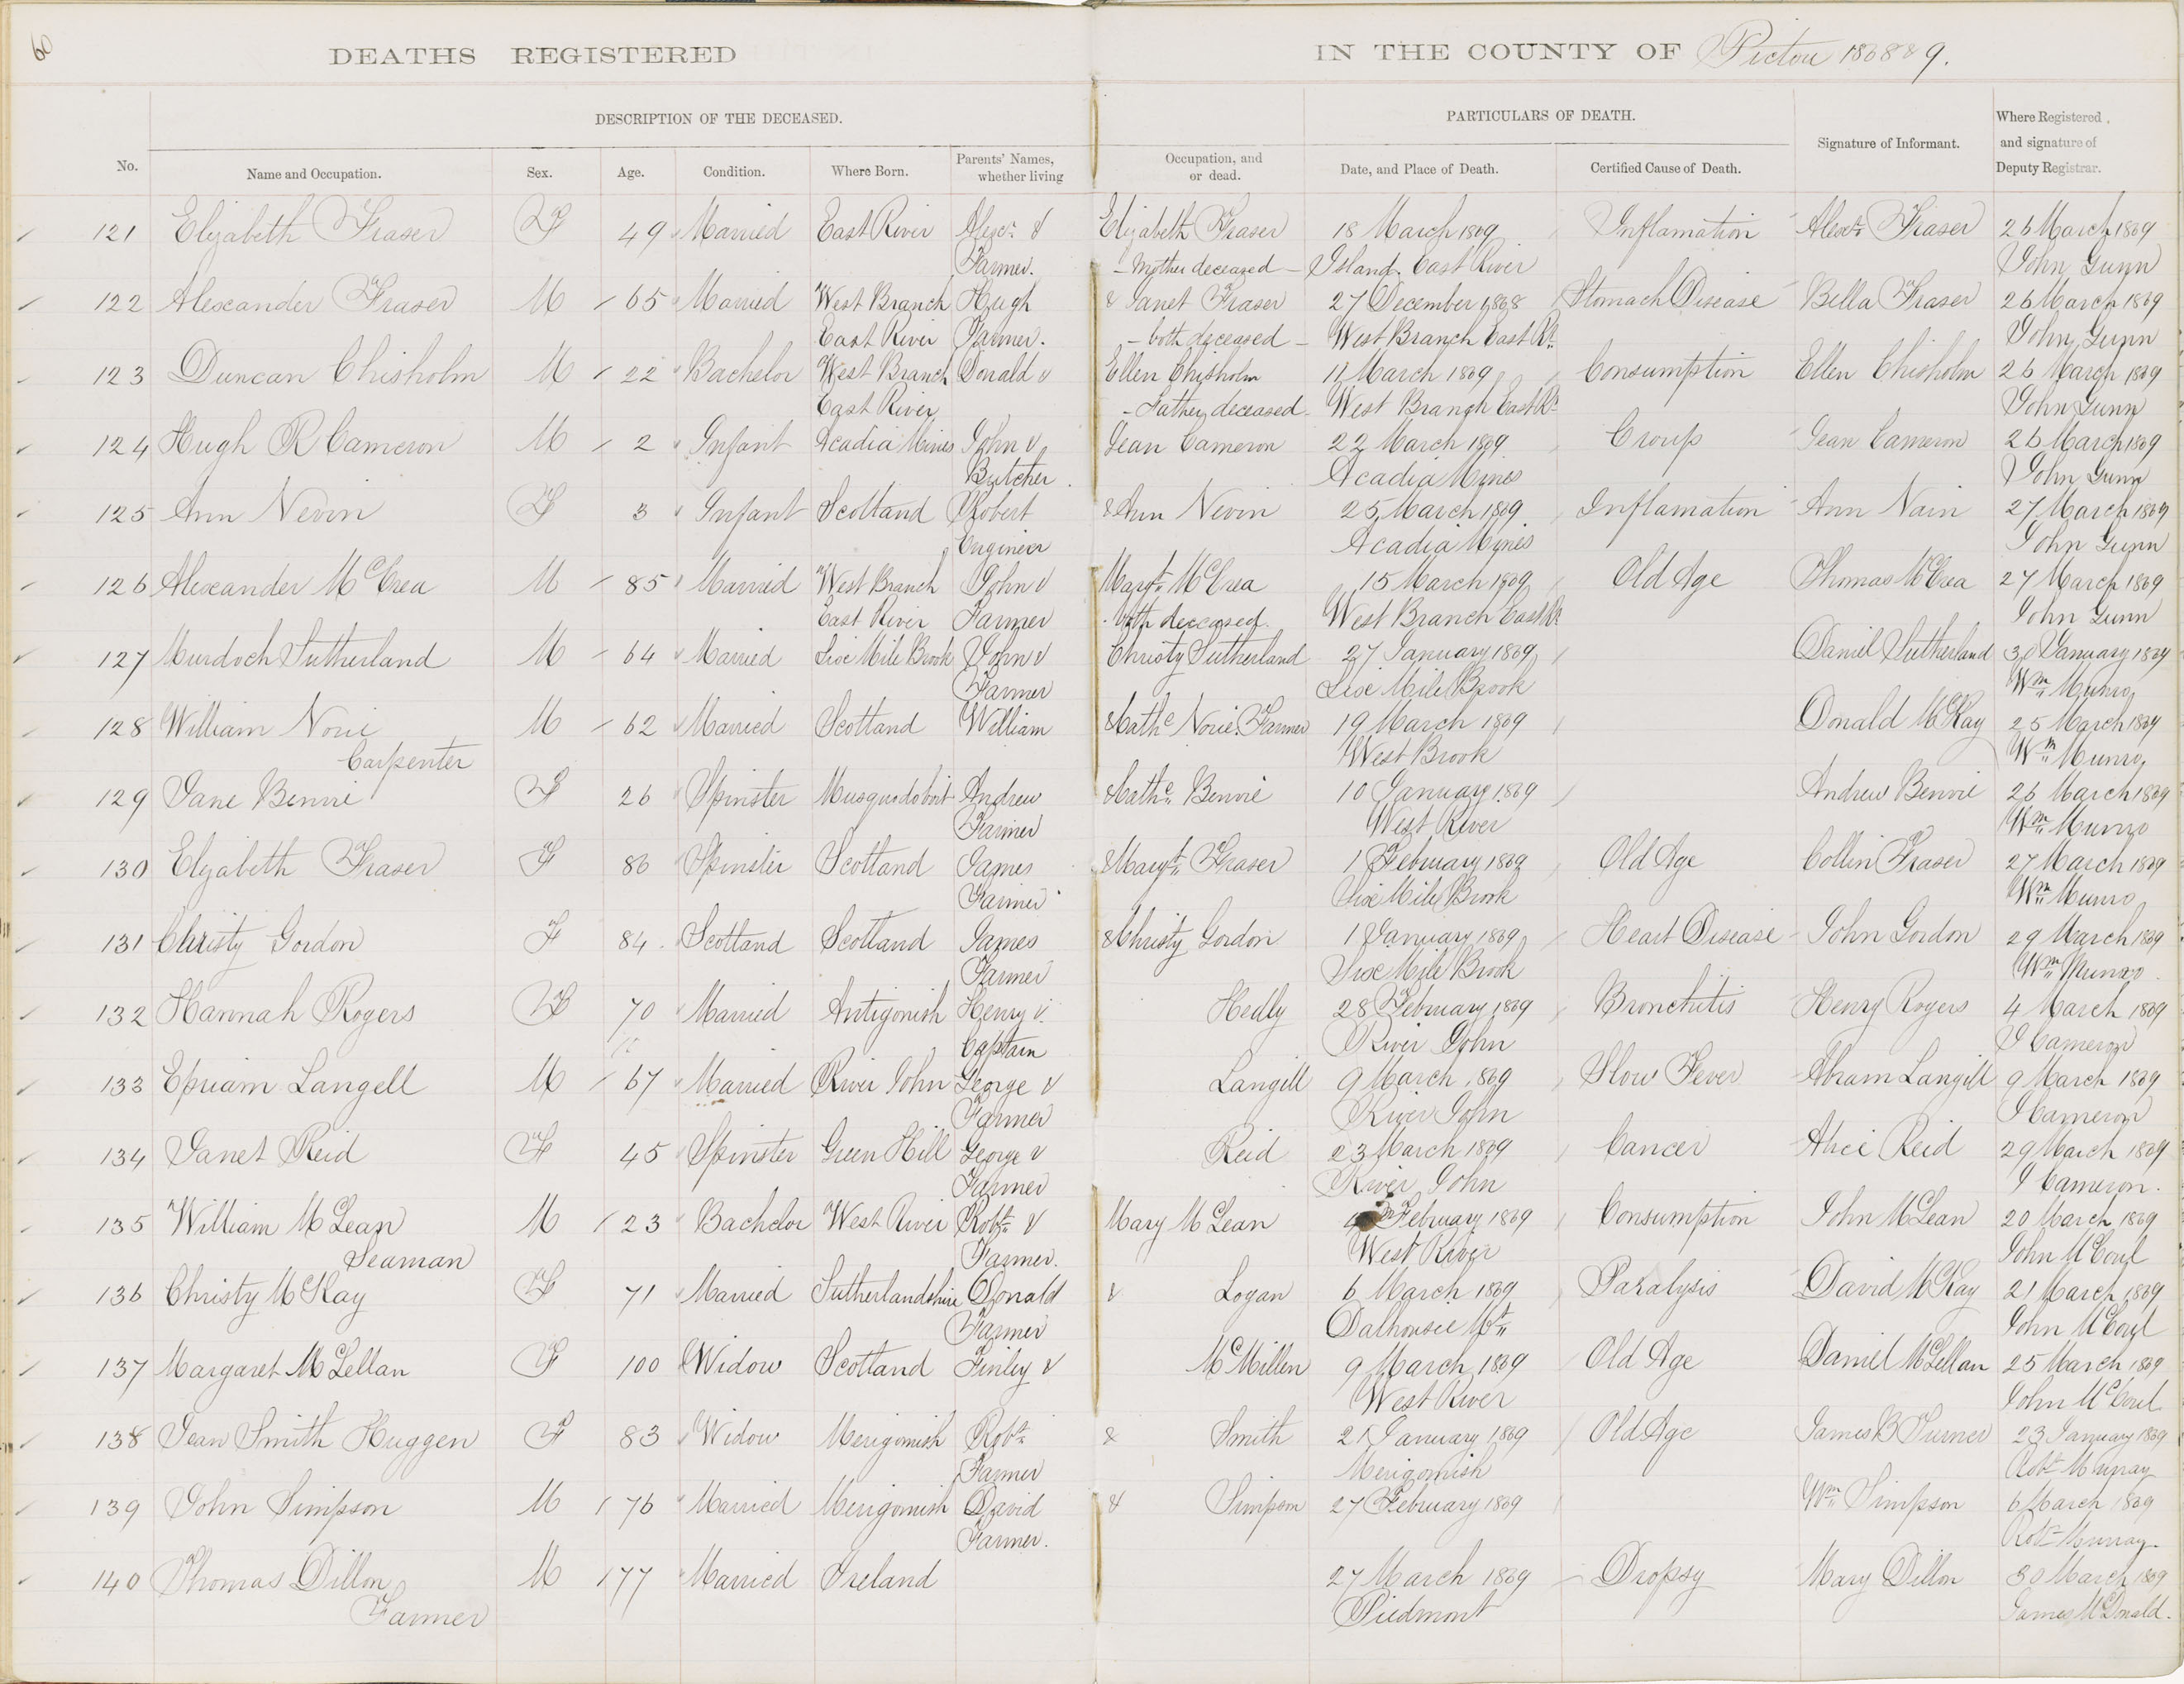 60
DEATHS REGISTERED IN THE COUNTY OF Pictou 1868 & 9.
DESCRIPTION OF THE DECEASED. PARTICULARS OF DEATH.
No. Name and Occupation. Sex. Age. Condition. Where Born. Parents' Names, whether living Occupation, and or dead. Date, and Place of Death. Certified Cause of Death. Signature of Informant. Where Registered, and signature of Deputy Registrar.
121 Elizabeth Fraser F 49 Married East River Alexr. & Elizabeth Fraser 18 March 1869 Inflamation Alexr. Fraser 26 March 1869
Farmer. - Mother deceased - Island, East River John Gunn
122 Alexander Fraser M 65 Married West Branch Hugh & Janet Fraser 27 December 1868 Stomach Disease Bella Fraser 26 March 1869
East River Farmer. - both deceased - West Branch East Rr. John Gunn
123 Duncan Chisholm M 22 Bachelor West Branch Donald & Ellen Chisholm 11 March 1869 Consumption Ellen Chisholm 26 March 1869
East River - Father deceased - West Branch East Rr. John Gunn
124 Hugh R Cameron M 2 Infant Acadia Mines John & Jean Cameron 22 March 1869 Croup Jean Cameron 26 March 1869
Butcher. Acadia Mines John Gunn
125 Ann Nevin F 3 Infant Scotland Robert & Ann Nevin 25 March 1869 Inflamation Ann Nain 27 March 1869
Engineer Acadia Mines John Gunn
126 Alexander McCrea M 85 Married West Branch John & Margt. McCrea 15 March 1869 Old Age Thomas McCrea 27 March 1869
East River Farmer both deceased. West Branch East Rr. John Gunn
127 Murdoch Sutherland M 64 Married Six Mile Brook John & Christy Sutherland 27 January 1869 Daniel Sutherland 30 January 1869
Farmer Six Mile Brook Wm. Munro
128 William Norie M 62 Married Scotland William & Cathe. Norie. Farmer 19 March 1869 Donald McKay 25 March 1869
Carpenter West Brook Wm. Munro
129 Jane Benvie F 26 Spinster Musquodoboit Andrew & Cathe. Benvie 10 January 1869 Andrew Benvie 26 March 1869
Farmer West River Wm. Munro
130 Elizabeth Fraser F 86 Spinster Scotland James & Margt. Fraser 1 February 1869 Old Age Collin Fraser 27 March 1869
Farmer Six Mile Brook Wm. Munro
131 Christy Gordon F 84 Scotland Scotland James & Christy Gordon 1 January 1869 Heart Disease John Gordon 29 March 1869
Farmer Six Mile Brook Wm. Munro
132 Hannah Rogers F 70 Married Antigonish Henry & Hedly 28 February 1869 Bronchitis Henry Rogers 4 March 1869
Captain River John J Cameron
133 Epriam Langell M 67 Married River John George & Langill 9 March 1869 Slow Fever Abram Langill 9 March 1869
Farmer River John J Cameron
134 Janet Reid F 45 Spinster Green Hill George & Reid 23 March 1869 Cancer Alice Reid 29 March 1869
Farmer River John J Cameron.
135 William McLean M 23 Bachelor West River Robt. & Mary McLean February 1869 Consumption John McLean 20 March 1869
Seaman Farmer. West River John McCoul
136 Christy McKay F 71 Married Sutherlandshire Donald & Logan 6 March 1869 Paralysis David McKay 21 March 1869
Farmer Dalhousie Mt. John McCoul
137 Margaret McLellan F 100 Widow Scotland Finley & McMillen 9 March 1869 Old Age Daniel McLellan 25 March 1869
West River John McCoul
138 Jean Smith Huggen F 83 Widow Merigomish Robt. & Smith 21 January 1869 Old Age James B Turner 23 January 1869
Farmer Merigomish Robt. Murray
139 John Simpson M 76 Married Merigomish David & Simpson 27 February 1869 Wm. Simpson 6 March 1869
Farmer. Robt. Murray
140 Thomas Dillon M 77 Married Ireland 27 March 1869 Dropsy Mary Dillon 30 March 1869
Farmer Piedmont James McDonald.